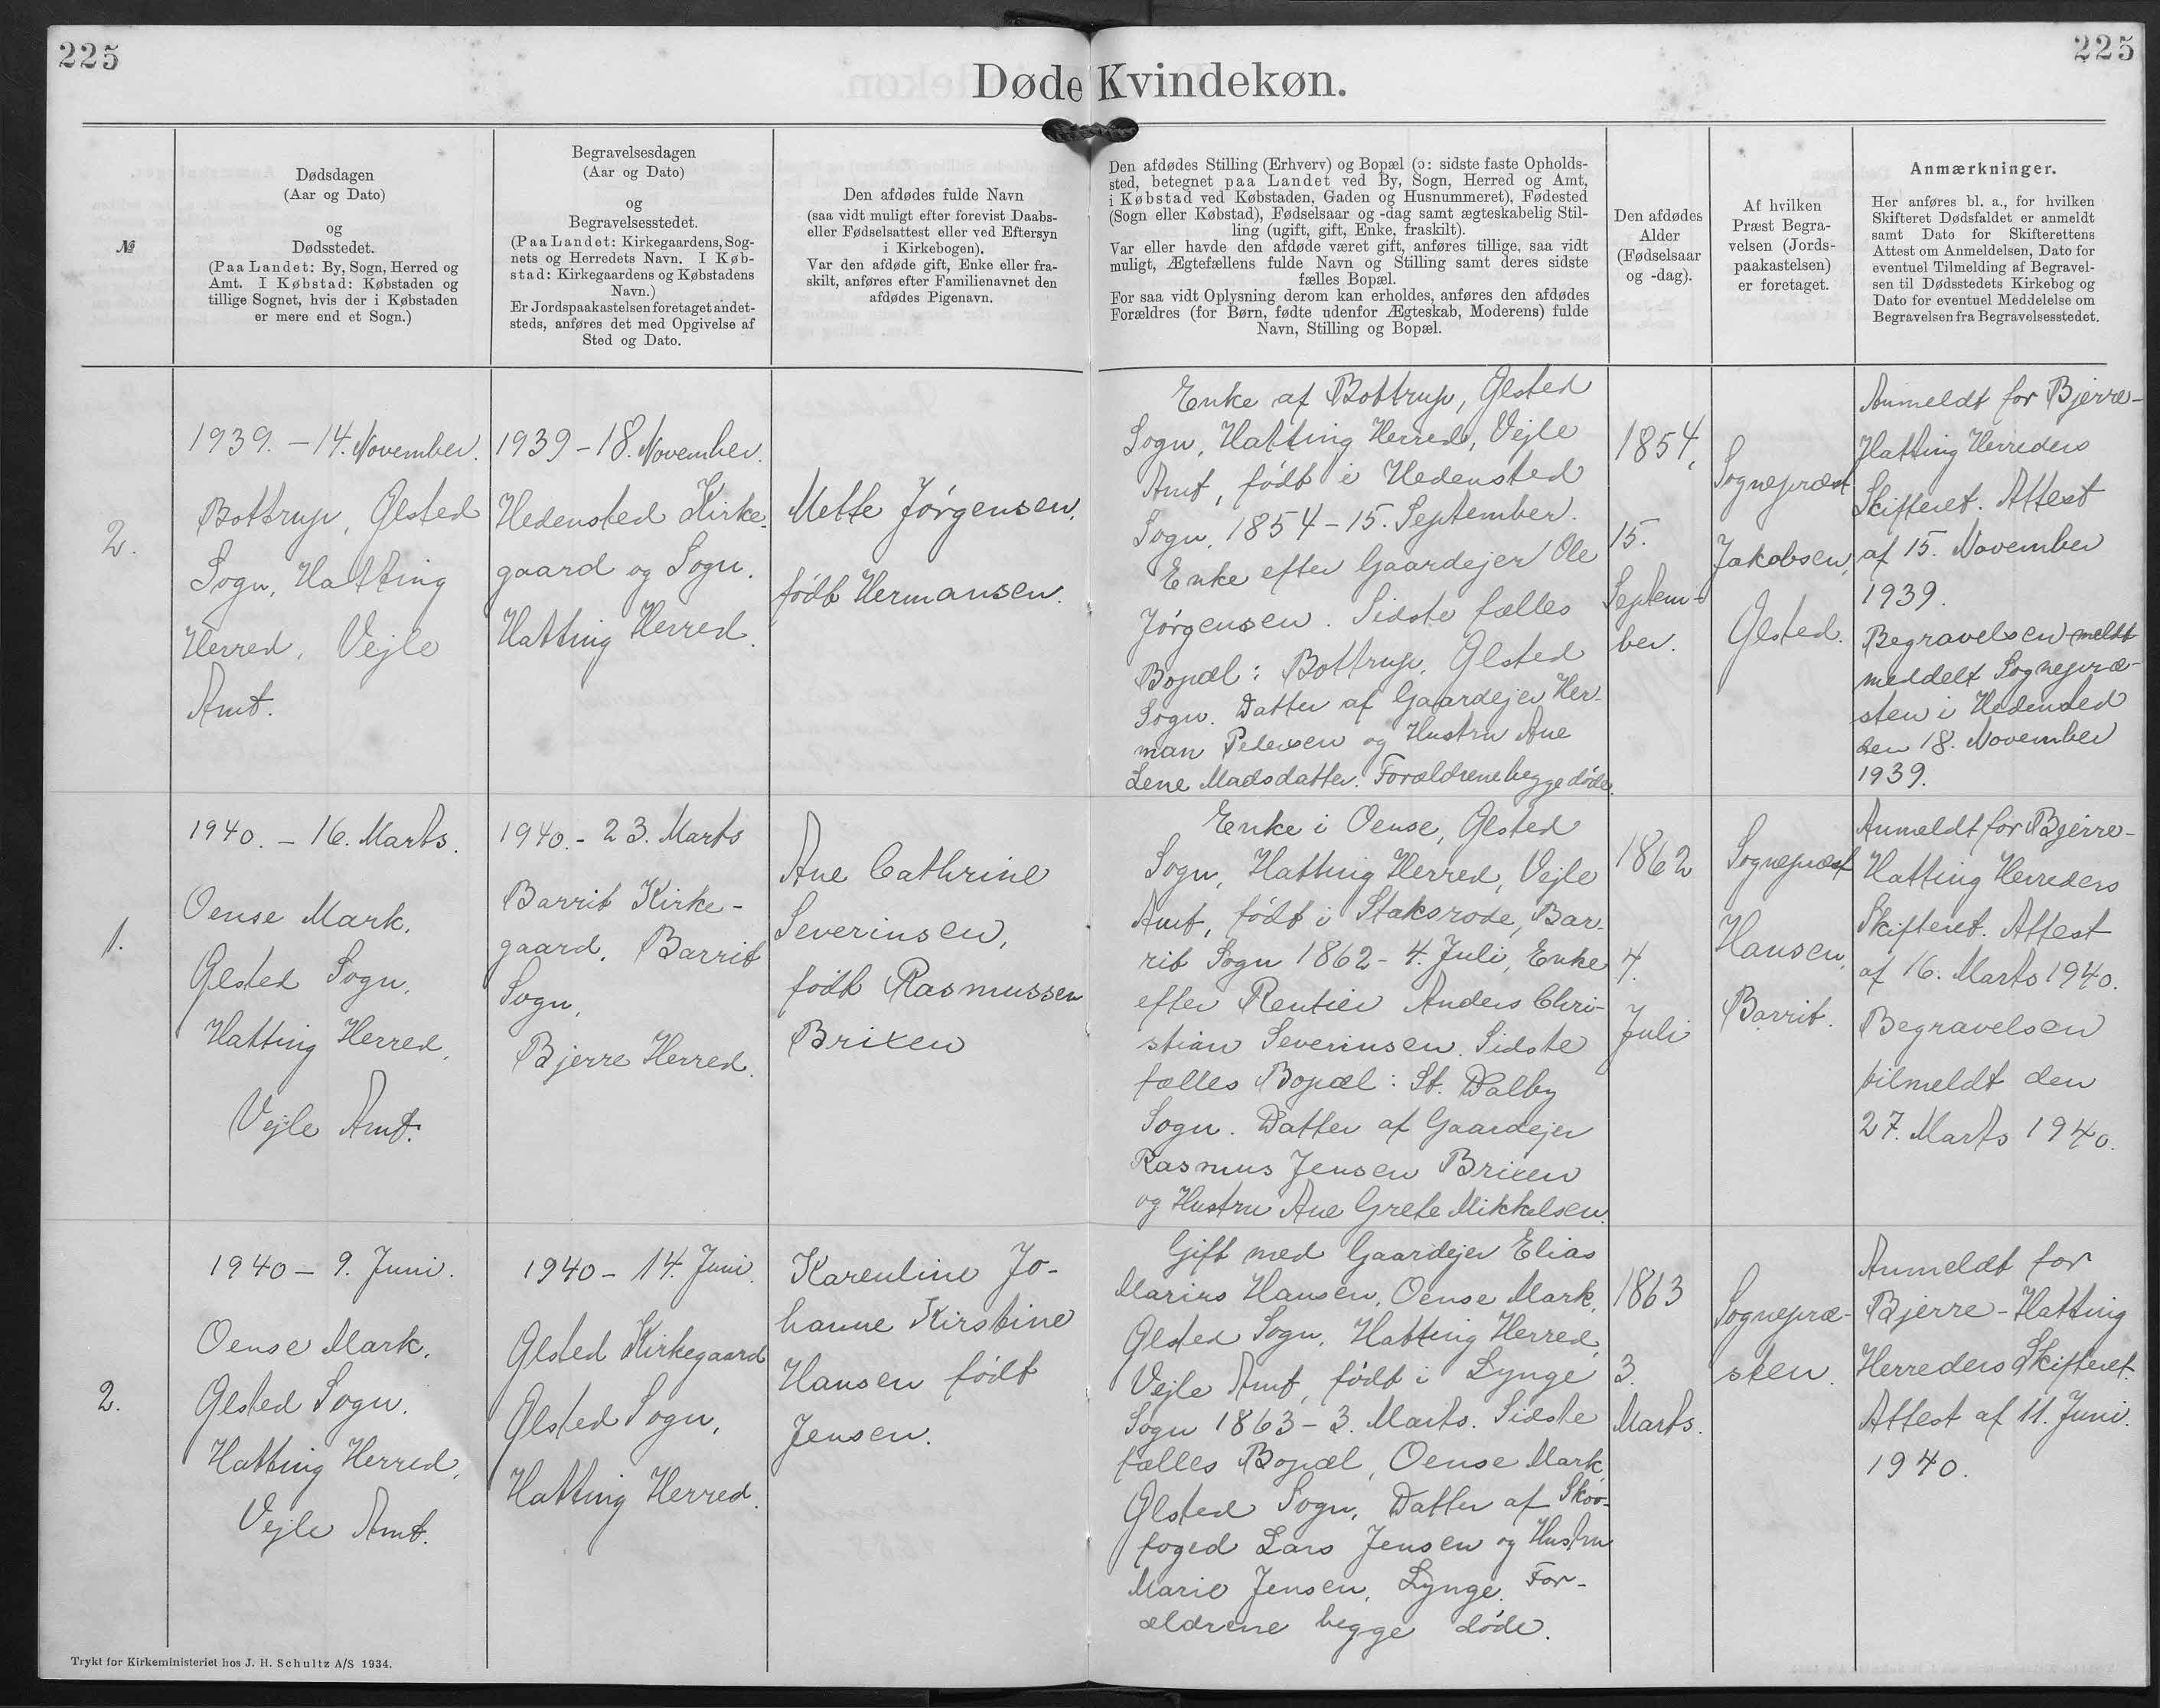 225
225
Døde Kvindekøn.
№
Dødsdagen
(Aar og Dato)
og
Dødsstedet.
(Paa Landet: By, Sogn, Herred og
Amt. I Købstad: Købstaden og
tillige Sognet, hvis der i Købstaden
er mere end et Sogn.)
Begravelsesdagen
(Aar og Dato)
og
Begravelsesstedet.
(Paa Landet: Kirkegaardens, Sog-
nets og Herredets Navn. I Køb-
stad: Kirkegaardens og Købstadens
Navn.)
Er Jordspaakastelsen foretaget andet-
steds, anføres det med Opgivelse af
Sted og Dato.
Den afdødes fulde Navn
(saa vidt muligt efter forevist Daabs-
eller Fødselsattest eller ved Eftersyn
i Kirkebogen).
Var den afdøde gift, Enke eller fra-
skilt, anføres efter Familienavnet den
afdødes Pigenavn.
Den afdødes Stilling (Erhverv) og Bopæl (ɔ: sidste faste Opholds-
sted, betegnet paa Landet ved By, Sogn, Herred og Amt,
i Købstad ved Købstaden, Gaden og Husnummeret), Fødested
(Sogn eller Købstad), Fødselsaar og -dag samt ægteskabelig Stil-
ling (ugift, gift, Enke, fraskilt).
Var eller havde den afdøde været gift, anføres tillige, saa vidt
muligt, Ægtefællens fulde Navn og Stilling samt deres sidste
fælles Bopæl.
For saa vidt Oplysning derom kan erholdes, anføres den afdødes
Forældres (for Børn, fødte udenfor Ægteskab, Moderens) fulde
Navn, Stilling og Bopæl.
Den afdødes
Alder
(Fødselsaar
og -dag).
Af hvilken
Præst Begra-
velsen (Jords-
paakastelsen)
er foretaget.
Anmærkninger.
Her anføres bl. a., for hvilken
Skifteret Dødsfaldet er anmeldt
samt Dato for Skifterettens
Attest om Anmeldelsen, Dato for
eventuel Tilmelding af Begravel-
sen til Dødsstedets Kirkebog og
Dato for eventuel Meddelelse om
Begravelsen fra Begravelsesstedet.
2.
1939. - 14. November.
Bottrup, Ølsted
Sogn, Hatting
Herred, Vejle
Amt.
1939 - 18. November.
Hedensted Kirke-
gaard og Sogn.
Hatting Herred.
Mette Jørgensen,
født Hermansen.
Enke af Bottrup, Ølsted
Sogn, Hatting Herred, Vejle
Amt, født i Hedensted
Sogn, 1854 - 15. September.
Enke efter Gaardejer Ole
Jørgensen. Sidste fælles
Bopæl: Bottrup, Ølsted
Sogn. Datter af Gaardejer Her-
man Pedersen og Hustru Ane
Lene Madsdatter. Forældrene begge døde.
1854,
15.
Septem-
ber.
Sognepræst
Jakobsen,
Ølsted.
Anmeldt for Bjerre-
Hatting Herreders
Skifteret. Attest
af 15. November
1939.
Begravelsen meldt
meddelt Sognepræ-
sten i Hedensted
den 18. November
1939.
1.
1940. - 16. Marts.
Oense Mark,
Ølsted Sogn,
Hatting Herred,
Vejle Amt.
1940. - 23. Marts
Barrit Kirke-
gaard, Barrit
Sogn,
Bjerre Herred.
Ane Cathrine
Severinsen,
født Rasmussen
Brixen
Enke i Oense, Ølsted
Sogn, Hatting Herred, Vejle
Amt, født i Staksrode, Bar-
rit Sogn 1862 - 4. Juli, Enke
efter Rentier Anders Chri-
stian Severinsen. Sidste
fælles Bopæl: St. Dalby
Sogn. Datter af Gaardejer
Rasmus Jensen Brixen
og Hustru Ane Grete Mikkelsen.
1862
4.
Juli
Sognepræst
Hansen,
Barrit.
Anmeldt for Bjerre-
Hatting Herreders
Skifteret. Attest
af 16. Marts 1940.
Begravelsen
tilmeldt den
27. Marts 1940.
2.
1940 - 9. Juni.
Oense Mark.
Ølsted Sogn.
Hatting Herred,
Vejle Amt.
1940 - 14. Juni.
Ølsted Kirkegaard
Ølsted Sogn,
Hatting Herred.
Karenline Jo-
hanne Kirstine
Hansen født
Jensen.
Gift med Gaardejer Elias
Marius Hansen, Oense Mark,
Ølsted Sogn, Hatting Herred,
Vejle Amt, født i Lynge
Sogn 1863 - 3. Marts. Sidste
fælles Bopæl, Oense Mark,
Ølsted Sogn, Datter af Skov-
foged Lars Jensen og Hustru
Marie Jensen, Lynge. For-
ældrene begge døde.
1863
3.
Marts.
Sognepræ-
sten.
Anmeldt for
Bjerre-Hatting
Herreders Skifteret.
Attest af 11. Juni.
1940.
Trykt for Kirkeministeriet hos J. H. Schultz A/S 1934.